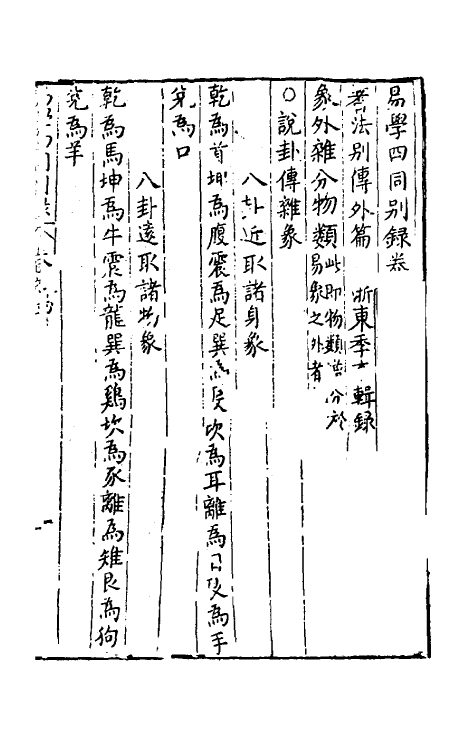 易學四同別錄卷
蓍法別傳外篇 浙東季 輯錄
象外雜分物類此即物類當分於易象之外者
○說卦傳雜象
八卦近取諸身象
乾為首坤為腹震為足巽為股坎為耳離為目艮為手
兌為口
八卦遠取諸物象
乾為馬坤為牛震為龍巽為鷄坎為豕離為雉艮為狗
兌為羊